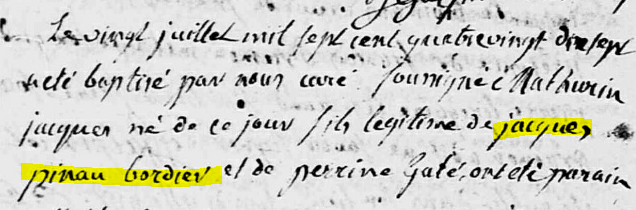 Le vingt juillet mil sept cent quatre vingt dix sept
a eté baptisé par nous curé soussigné Mathurin
jacques né de ce jour fils legitime de jacques
pinau bordier et de perrine Gaté, ont eté parain